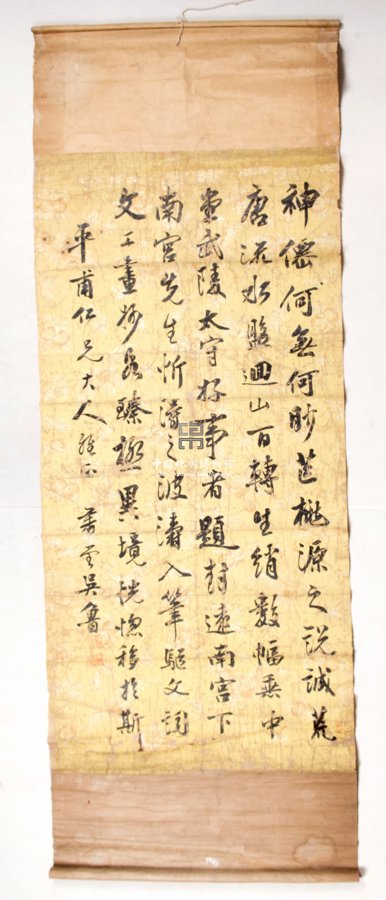 神僊何無何眇茫桃源之說誠荒
唐流水盤迴山百轉生綃數幅垂中
堂武陵太守好事者題封遠南宮下
南宮先生忻得之波濤入筆驅文詞
文工畫妙各臻極異境恍惚移於斯
平甫仁兄大人雅正 肅堂吳魯